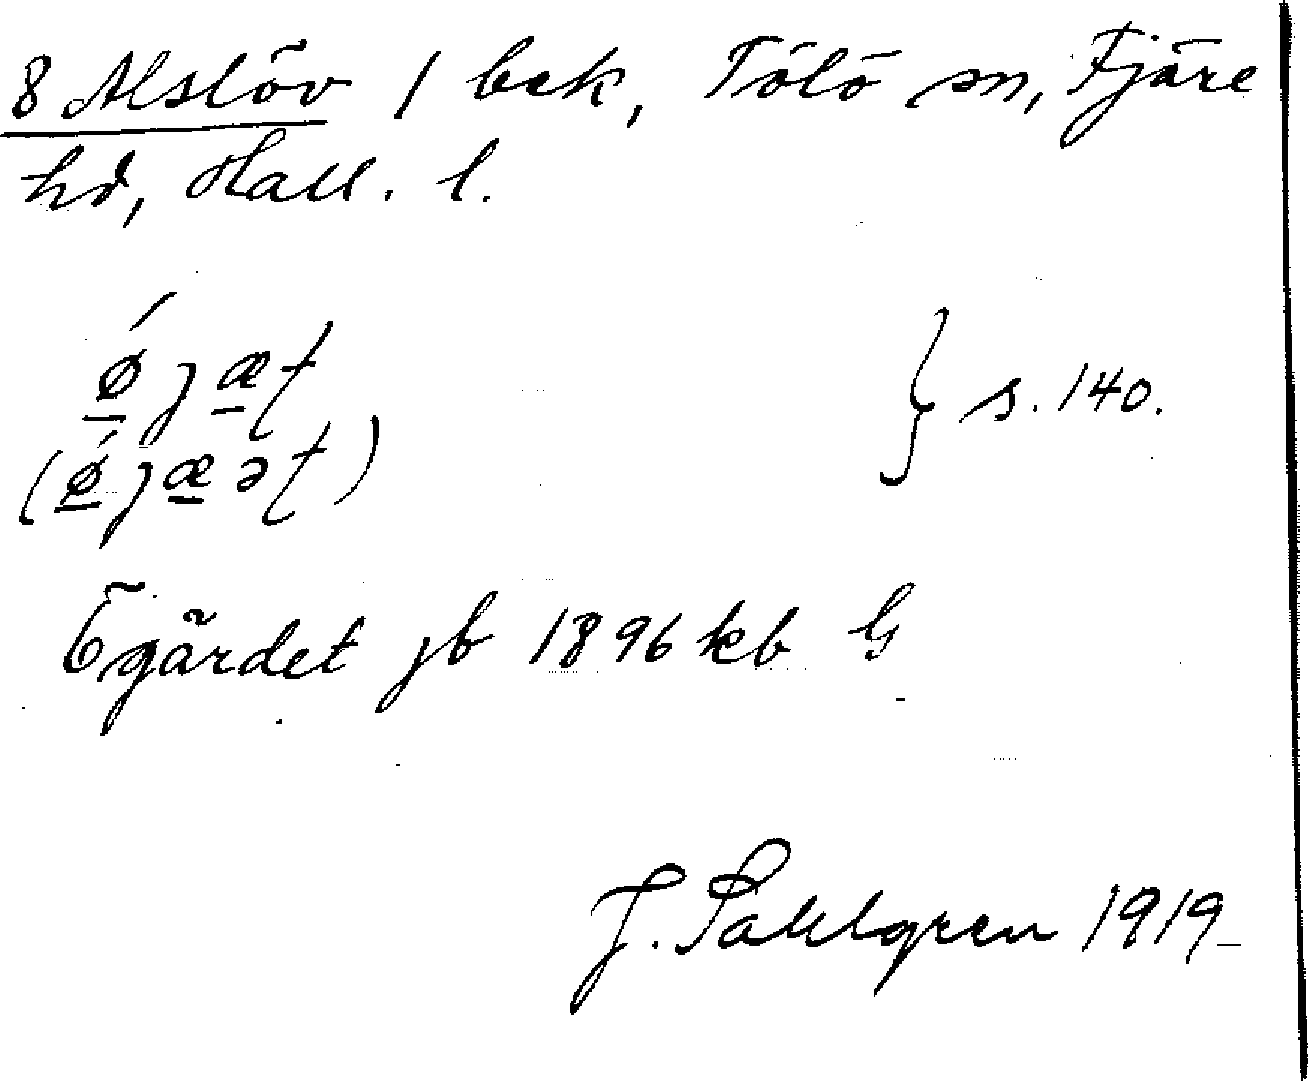 8 Alslöv 1 bek, Tölö sn, Fjäre
hd, Hall. l.
ǿjæt } s. 140.
(ǿjæət)
Ögärdet jb 1896 kb G
J. Sahlgren 1919